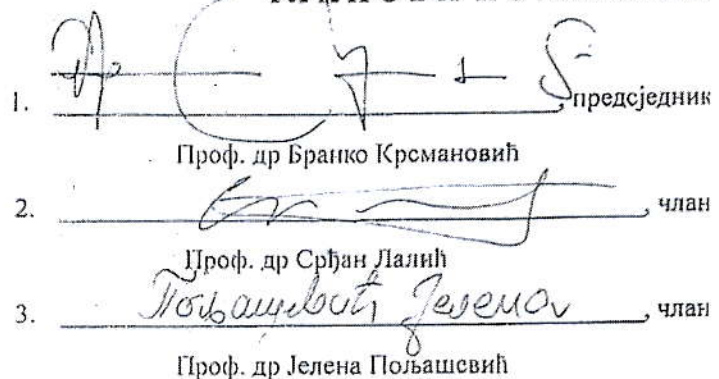 1. , предсједник
Проф. др Бранко Крсмановић
2. , члан
Проф. др Срђан Лалић
3. Пољашевић Јелена, члан
Проф. др Јелена Пољашевић